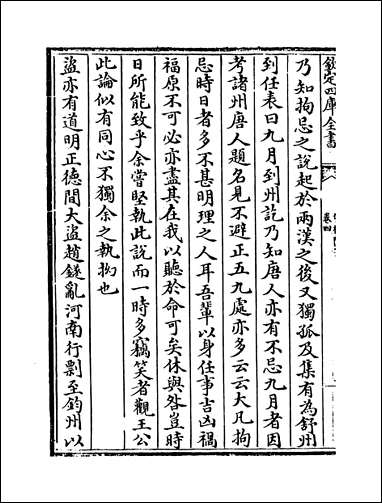 欽定四庫全書
卷四
乃知拘忌之說起於兩漢之後又獨孤及集有為舒州
到任表曰九月到州訖乃知唐人亦有不忌九月者因
考諸州唐人題名見不避正五九處亦多云云大凡拘
忌時日者多不甚明理之人耳吾輩以身任事吉凶禍
福原不可必亦盡其在我以聽於命可矣休與咎豈時
日所能致乎余嘗堅執此說而一時多竊笑者觀王公
此論似有同心不獨余之執拗也
盜亦有道明正德間大盜趙鐩亂河南行剽至鈞州以